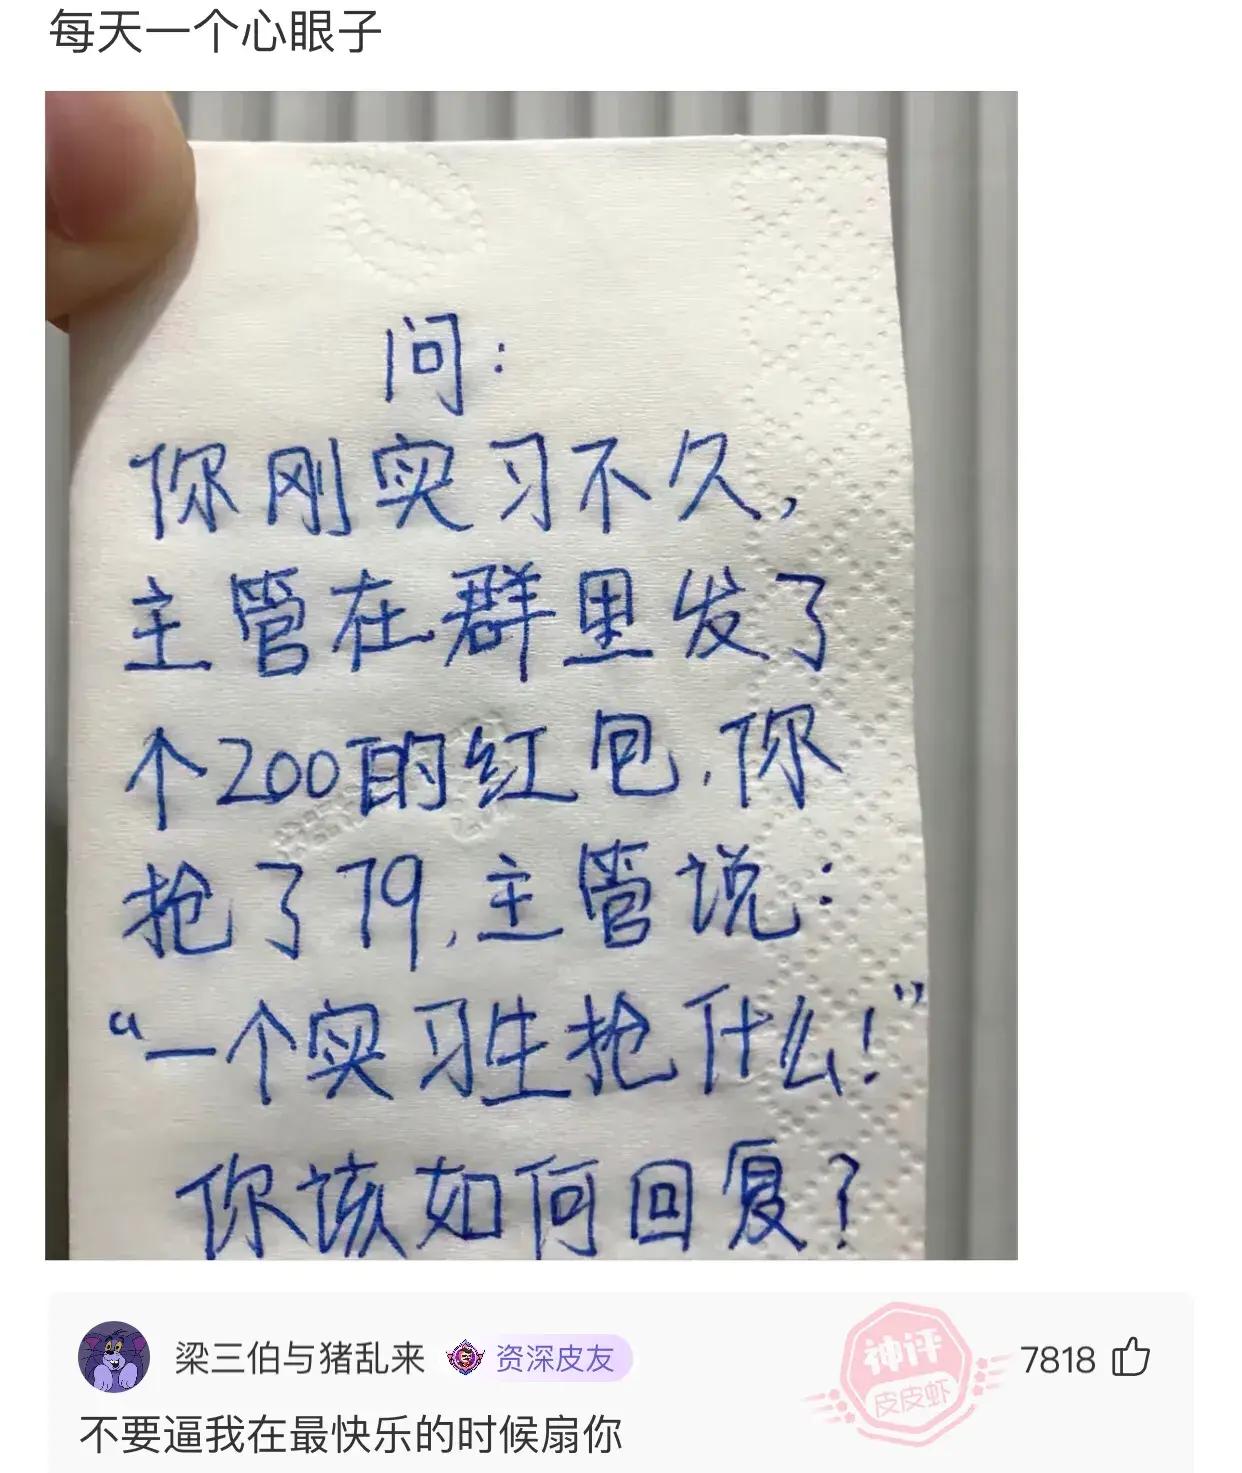 每天一个心眼子
问：
你刚实习不久，
主管在群里发了
个200的红包，你
抢了79，主管说：
“一个实习生抢什么！”
你该如何回复？
梁三伯与猪乱来 资深皮友 神评 皮皮虾 7818
不要逼我在最快乐的时候扇你